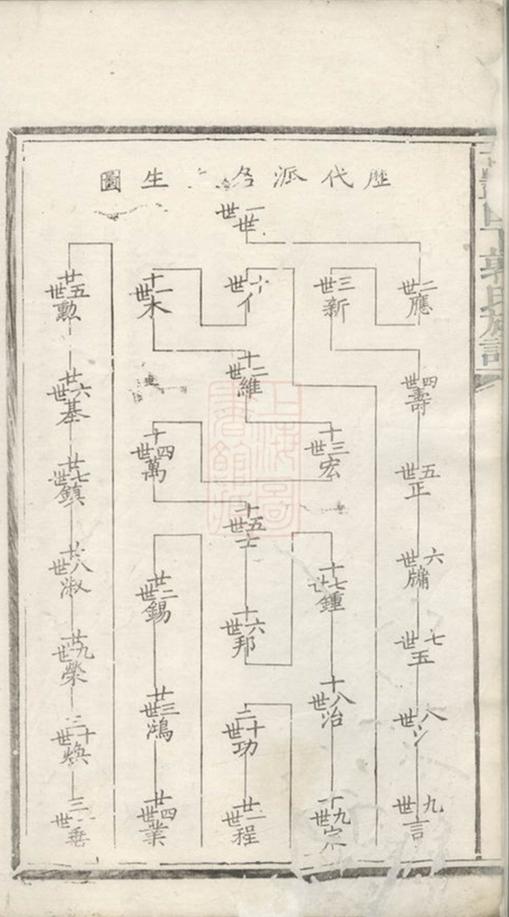 歷代派名生圖
一世
二世應
三世新
四世壽
五世正
六世牗
七世
八世
九世言
十世亻
十一世木
十二世維
十三世宏
十四世萬
十五士世
十六世邦
十七鍾
十八世治
十九世
二十世功
廿一世程
廿二世錫
廿三世鴻
廿四世業
廿五世勳
廿六世基
廿七世鎮
廿八世淑
廿九世榮
三十世煥
三世垂
郭氏族譜
上海圖書館藏